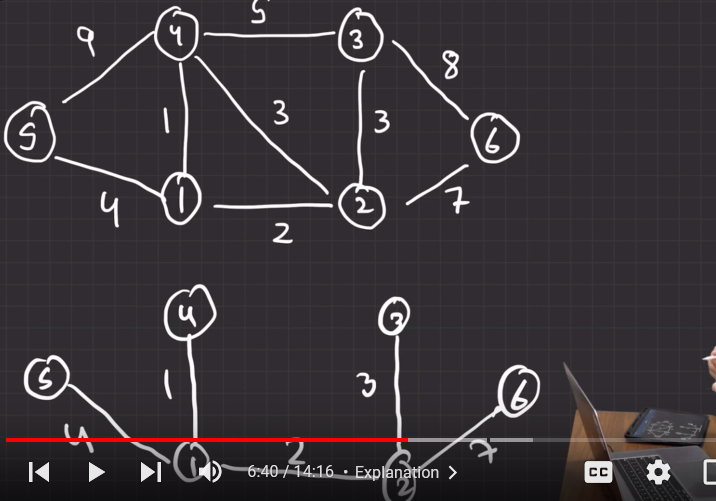 5
9
4
3
8
1
3
3
5
6
4
1
2
7
2
4
3
5
1
3
6
4
1
2
2
7
6:40 / 14:16 • Explanation
CC